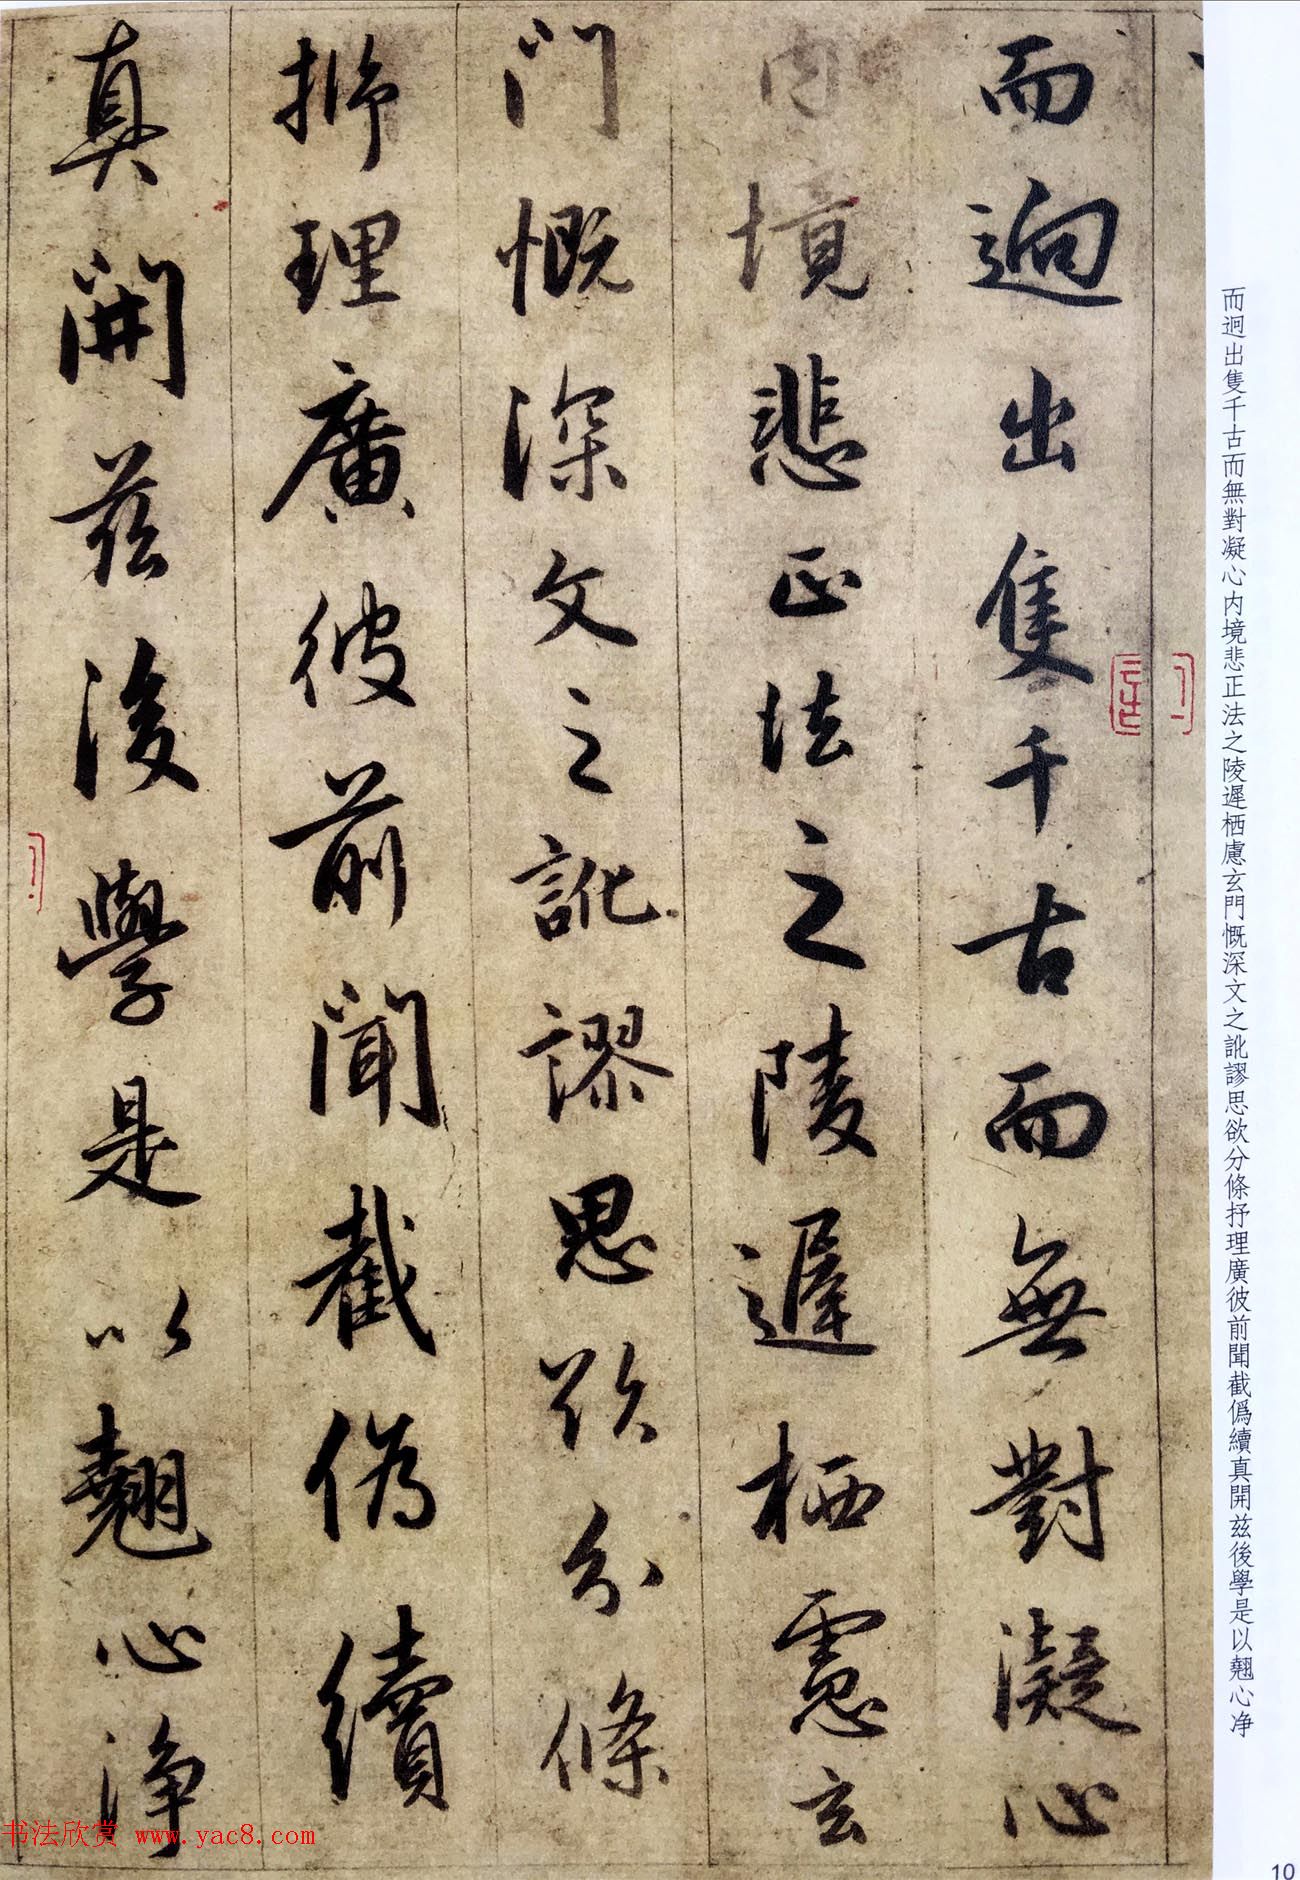 而迥出隻千古而無對凝心内境悲正法之陵遲栖慮玄門慨深文之訛謬思欲分條抒理廣彼前聞截僞續真開兹後學是以翹心净
而迥出隻千古而無對凝心
内境悲正法之陵遲栖慮玄
門慨深文之訛謬思欲分條
抒理廣彼前聞截偽續
真開兹後學是以翹心净
书法欣赏 www.yac8.com
10